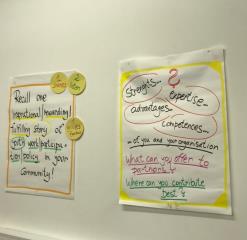 Recall one
inspirational/rewarding
fulfilling story of
youth work/participa-
tion policy in your
community!
?
Strengths...
expertise...
advantages...
competences...
- of you and your organisation
What can you offer to
partners?
Where can you contribute
best?